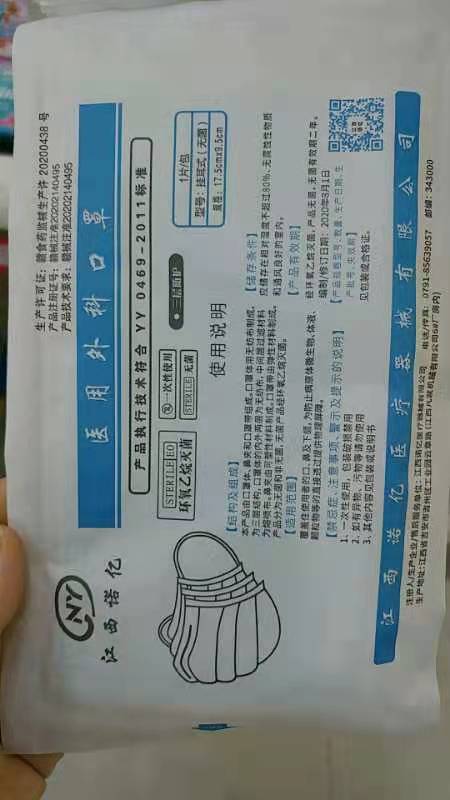 生产许可证：赣食药监械生产许 20200438 号
产品注册证号：赣械注准20202140495
产品技术要求：赣械注准20202140495
NY
江西诺亿
医用外科口罩
产品执行技术符合 YY 0469-2011标准
STERILE EO
环氧乙烷灭菌
一次性使用
STERILE 无菌
三层防护
1片/包
型号：挂耳式（无菌）
规格：17.5cmx9.5cm
使用说明
【结构及组成】
本产品由口罩体、鼻夹和口罩带组成。口罩体用无纺布制成，
为三层结构，口罩体的内外两层为无纺布，中间层过滤材料
为熔喷布。鼻夹由可塑性材料制成。口罩带由弹性材料制成。
产品分为无菌和非无菌，无菌产品经环氧乙烷灭菌。
【适用范围】
覆盖住使用者的口、鼻及下颌，为防止病原体微生物、体液、
颗粒物等的直接透过提供物理屏障。
【禁忌症、注意事项、警示及提示的说明】
1、一次性使用，包装破损禁用
2、如有异物、污物等请勿使用
3、其他内容见包装或说明书
【储存条件】
应储存在相对湿度不超过80%、无腐蚀性物质
和通风良好的室内。
【产品有效期】
经环氧乙烷灭菌，产品无菌，无菌有效期二年。
编制/修订日期：2020年8月1日
见包装或合格证。
江西诺亿医疗器械有限公司
注册人/生产企业/售后服务单位：江西诺亿医疗器械有限公司 电话/传真：0791-85639057 邮编：343000
生产地址：江西省吉安市吉州区工业园云章路1(江西八菱机械有限公司6#厂房内)